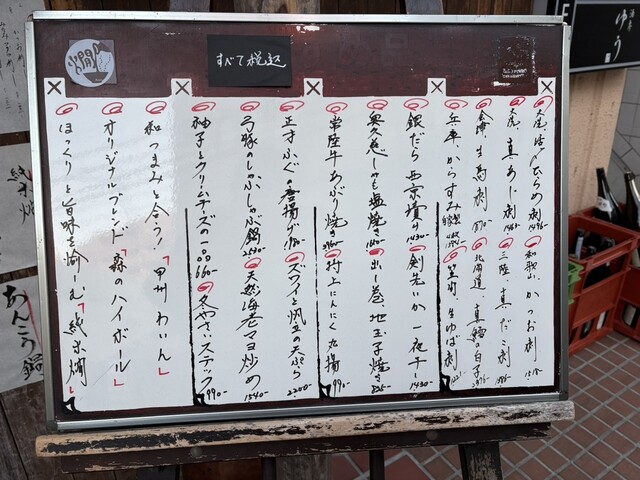 すべて税込
大分 活〆ひらめ刺 1496-
和歌山 かつお刺 1518-
大分 真あじ刺
三陸 真だこ刺
会津 生馬刺
北海道 真鱈白子
兵庫 からすみ
生ゆば刺
銀だら西京漬け 1430-
剣先いか一夜干し 1430-
奥久慈しゃも塩焼き
出し巻 地玉子焼
常陸牛あぶり焼
村上にんにく丸揚 990-
正才ふぐの唐揚げ
ズワイと帆立の天ぷら 2200-
弓豚のしゃぶしゃぶ鍋
天然海老マヨ炒め 1540-
柚子とクリームチーズの一品 660-
冬やさいスティック 990-
和つまみと合う！「甲州わいん」
オリジナルブレンド「森のハイボール」
ほっくりと旨味を愉しむ「純米燗」
純米燗
あんこう鍋
ゆう